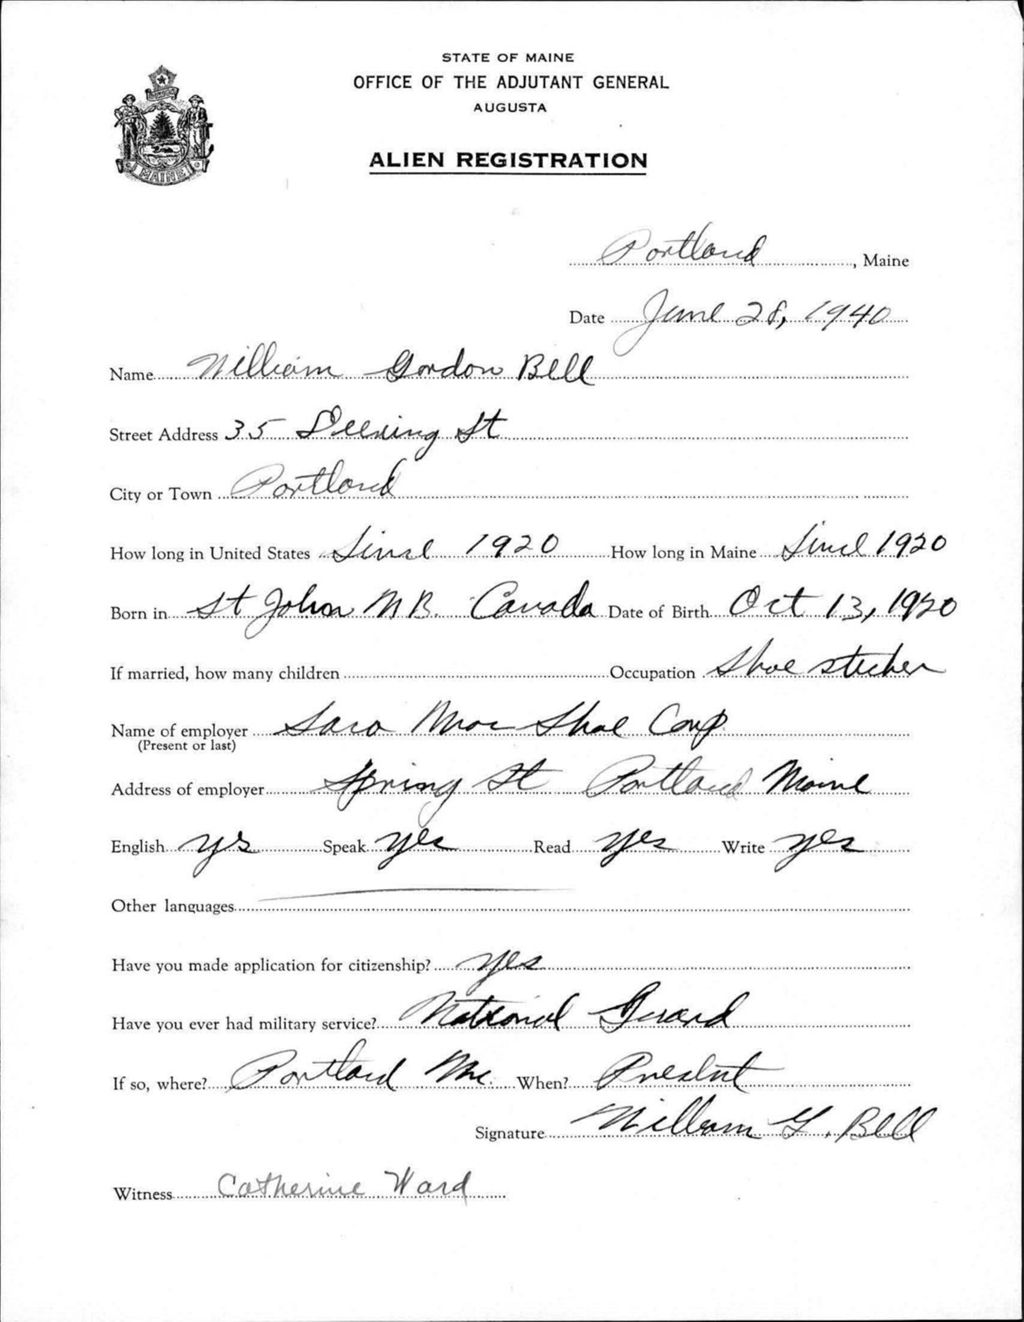 STATE OF MAINE
OFFICE OF THE ADJUTANT GENERAL
AUGUSTA
ALIEN REGISTRATION
MAINE
Portland, Maine
Date June 28, 1940
Name William Gordon Bell
Street Address 35 Deering St
City or Town Portland
How long in United States Since 1920 How long in Maine Since 1920
Born in St John N B. Canada Date of Birth Oct 13, 1920
If married, how many children Occupation Shoe sticher
Name of employer Shoe Corp
(Present or last)
Address of employer Spring St Portland Maine
English yes Speak yes Read yes Write yes
Other languages
Have you made application for citizenship? yes
Have you ever had military service? National Guard
If so, where? Portland Me. When? Present
Signature William G. Bell
Witness Catherine Ward